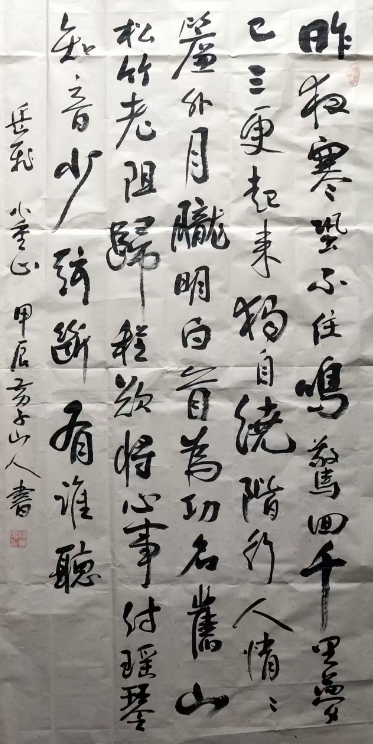 昨夜寒蛩不住鳴驚回千里夢
已三更起来獨自繞階行人悄〻
簾外月朧明白首為功名舊山
松竹老阻歸程欲將心事付瑶琴
知音少弦斷有誰聽
岳飛 小重山 甲辰 山人書